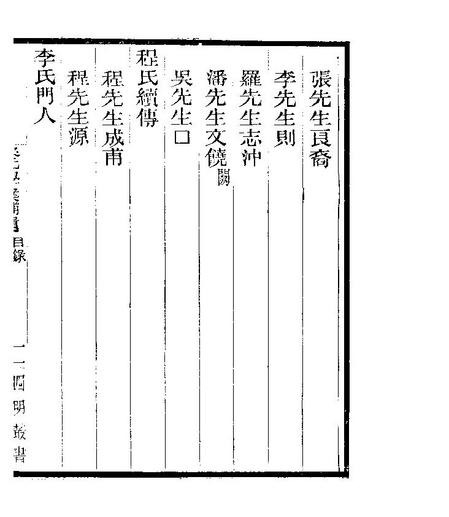 張先生良裔
李先生則
羅先生志沖
潘先生文饒闕
吳先生口
程氏續傳
程先生成甫
程先生源
李氏門人
目錄
四明叢書